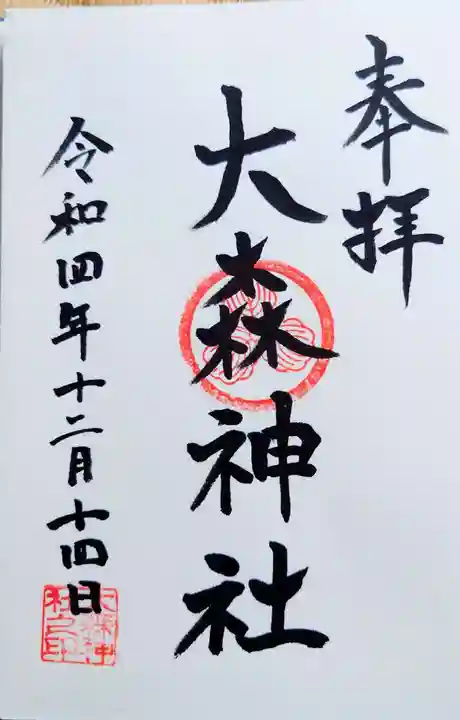 奉拝
大森神社
令和四年十二月十四日